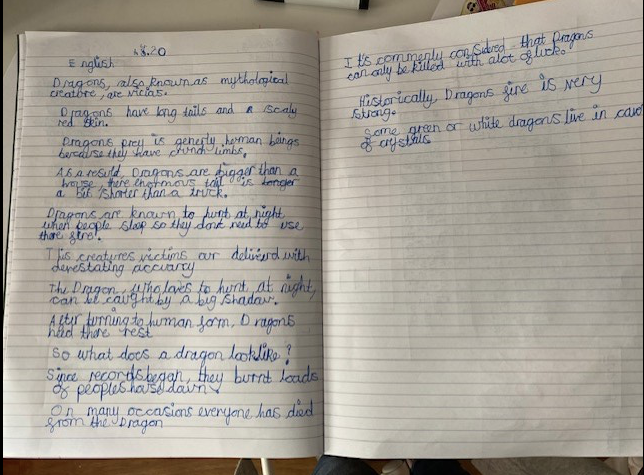 4.3.20
English
Dragons, also known as mythological
creature, are vicias.
Dragons have long tails and a scaly
red skin.
Dragons prey is generly human beings
because they have crunch limbs,
As a resuld, Dragons are bigger than a
house, there enormous tail is longer
a bit shorter than a truck.
Dragons are known to hunt at night
when people sleep so they dont need to use
there fire!
This creatures victims our deliverd with
devestating accuarcy
The Dragon, who loves to hunt at night,
can be caught by a big shadow.
After turning to human form, Dragons
head there rest
So what does a dragon look like?
Since records began, they burnt loads
of peoples house dawn
On many occasions everyone has died
from the Dragon
It's commenly considved that Dragons
can only be killed with alot of luck.
Historically, Dragons fire is very
strong.
Some green or white dragons live in
of crystals